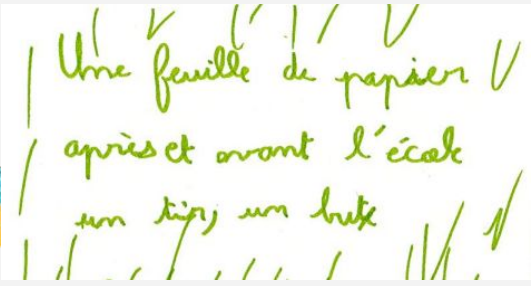 Une feuille de papier
après et avant l'école
un tir, un but